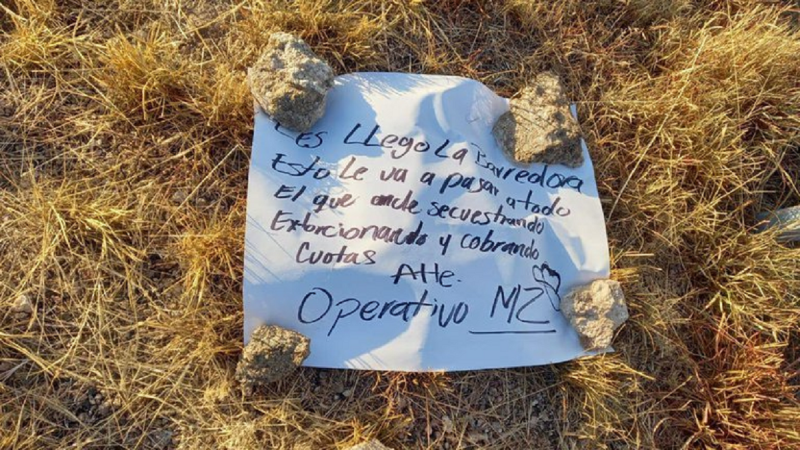 Les Llego La Barredora
Esto Le va a pasar a todo
El que ande secuestrando
Extorcionando y cobrando
Cuotas
Atte.
Operativo MZ